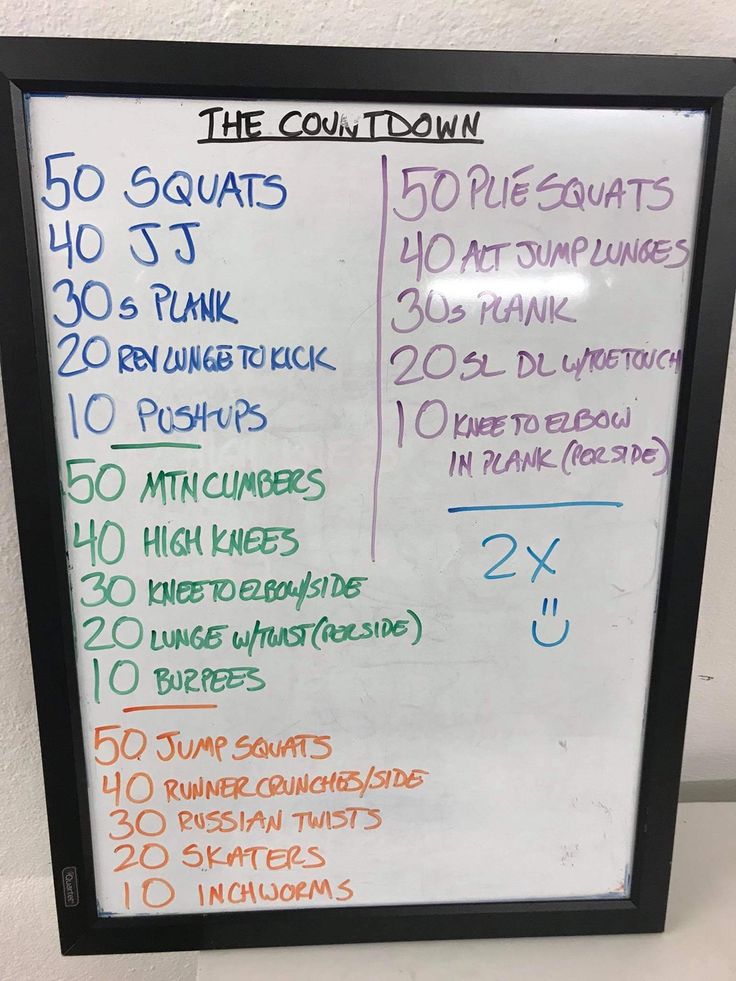 THE COUNTDOWN
50 SQUATS
40 JJ
30s PLANK
20 REV LUNGE TO KICK
10 PUSH-UPS
50 MTN CLIMBERS
40 HIGH KNEES
30 KNEE TO ELBOW/SIDE
20 LUNGE W/TWIST (PER SIDE)
10 BURPEES
50 JUMP SQUATS
40 RUNNER CRUNCHES/SIDE
30 RUSSIAN TWISTS
20 SKATERS
10 INCHWORMS
50 PLIÉ SQUATS
40 ALT JUMP LUNGES
30s PLANK
20 SL DL W/TOE TOUCH
10 KNEE TO ELBOW
IN PLANK (PER SIDE)
2X
Quartet